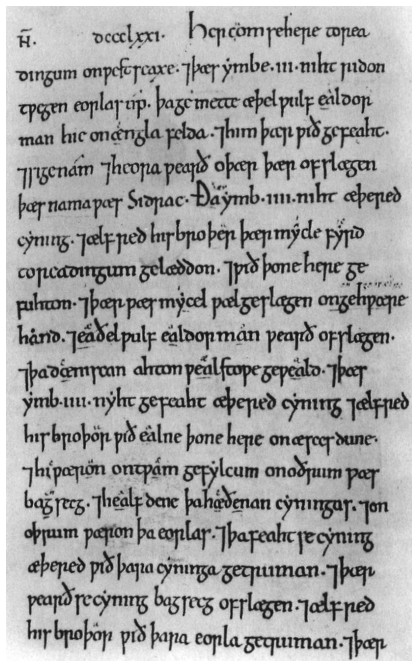 dccclxxi. Her com se here to rea
dingum on ƿest seaxe. ⁊ þæs ymbe .iii. niht ridon
tƿegen eorlas up. þa gemette æþelƿulf ealdor
man hie on ængla felda. ⁊ him þær ƿið gefeaht.
⁊ sige nam ⁊ heora ƿearð oþær þær ofslægen
þæs nama ƿæs Sidrac. Ða ymb .iiii. niht æþered
cyning. ⁊ ælfred his broþer þær mycle fyrd
to readingum gelæddon. ⁊ ƿið þone here ge
fuhton. ⁊ þær ƿæs mycel ƿæl geslægen on gehƿæþere
hand. ⁊ eaðelƿulf ealdorman ƿearð ofslægen.
⁊ þa dæniscan ahton ƿealstoƿe geƿeald. ⁊ þæs
ymb .iiii. nyht gefeaht æþered cyning ⁊ ælfred
his broþor ƿið ealne þone here on æscesdune.
⁊ hi ƿæron on tƿam gefylcum on oðrum ƿæs
bagsecg. ⁊ healfdene þa hæðenan cyningas. ⁊ on
oþrum ƿæron þa eorlas. ⁊ þa feaht se cyning
æþered ƿið þara cyninga getruman. ⁊ þær
ƿearð se cyning bagsecg ofslægen. ⁊ ælfred
his broþor ƿið þara eorla getruman. ⁊ þær